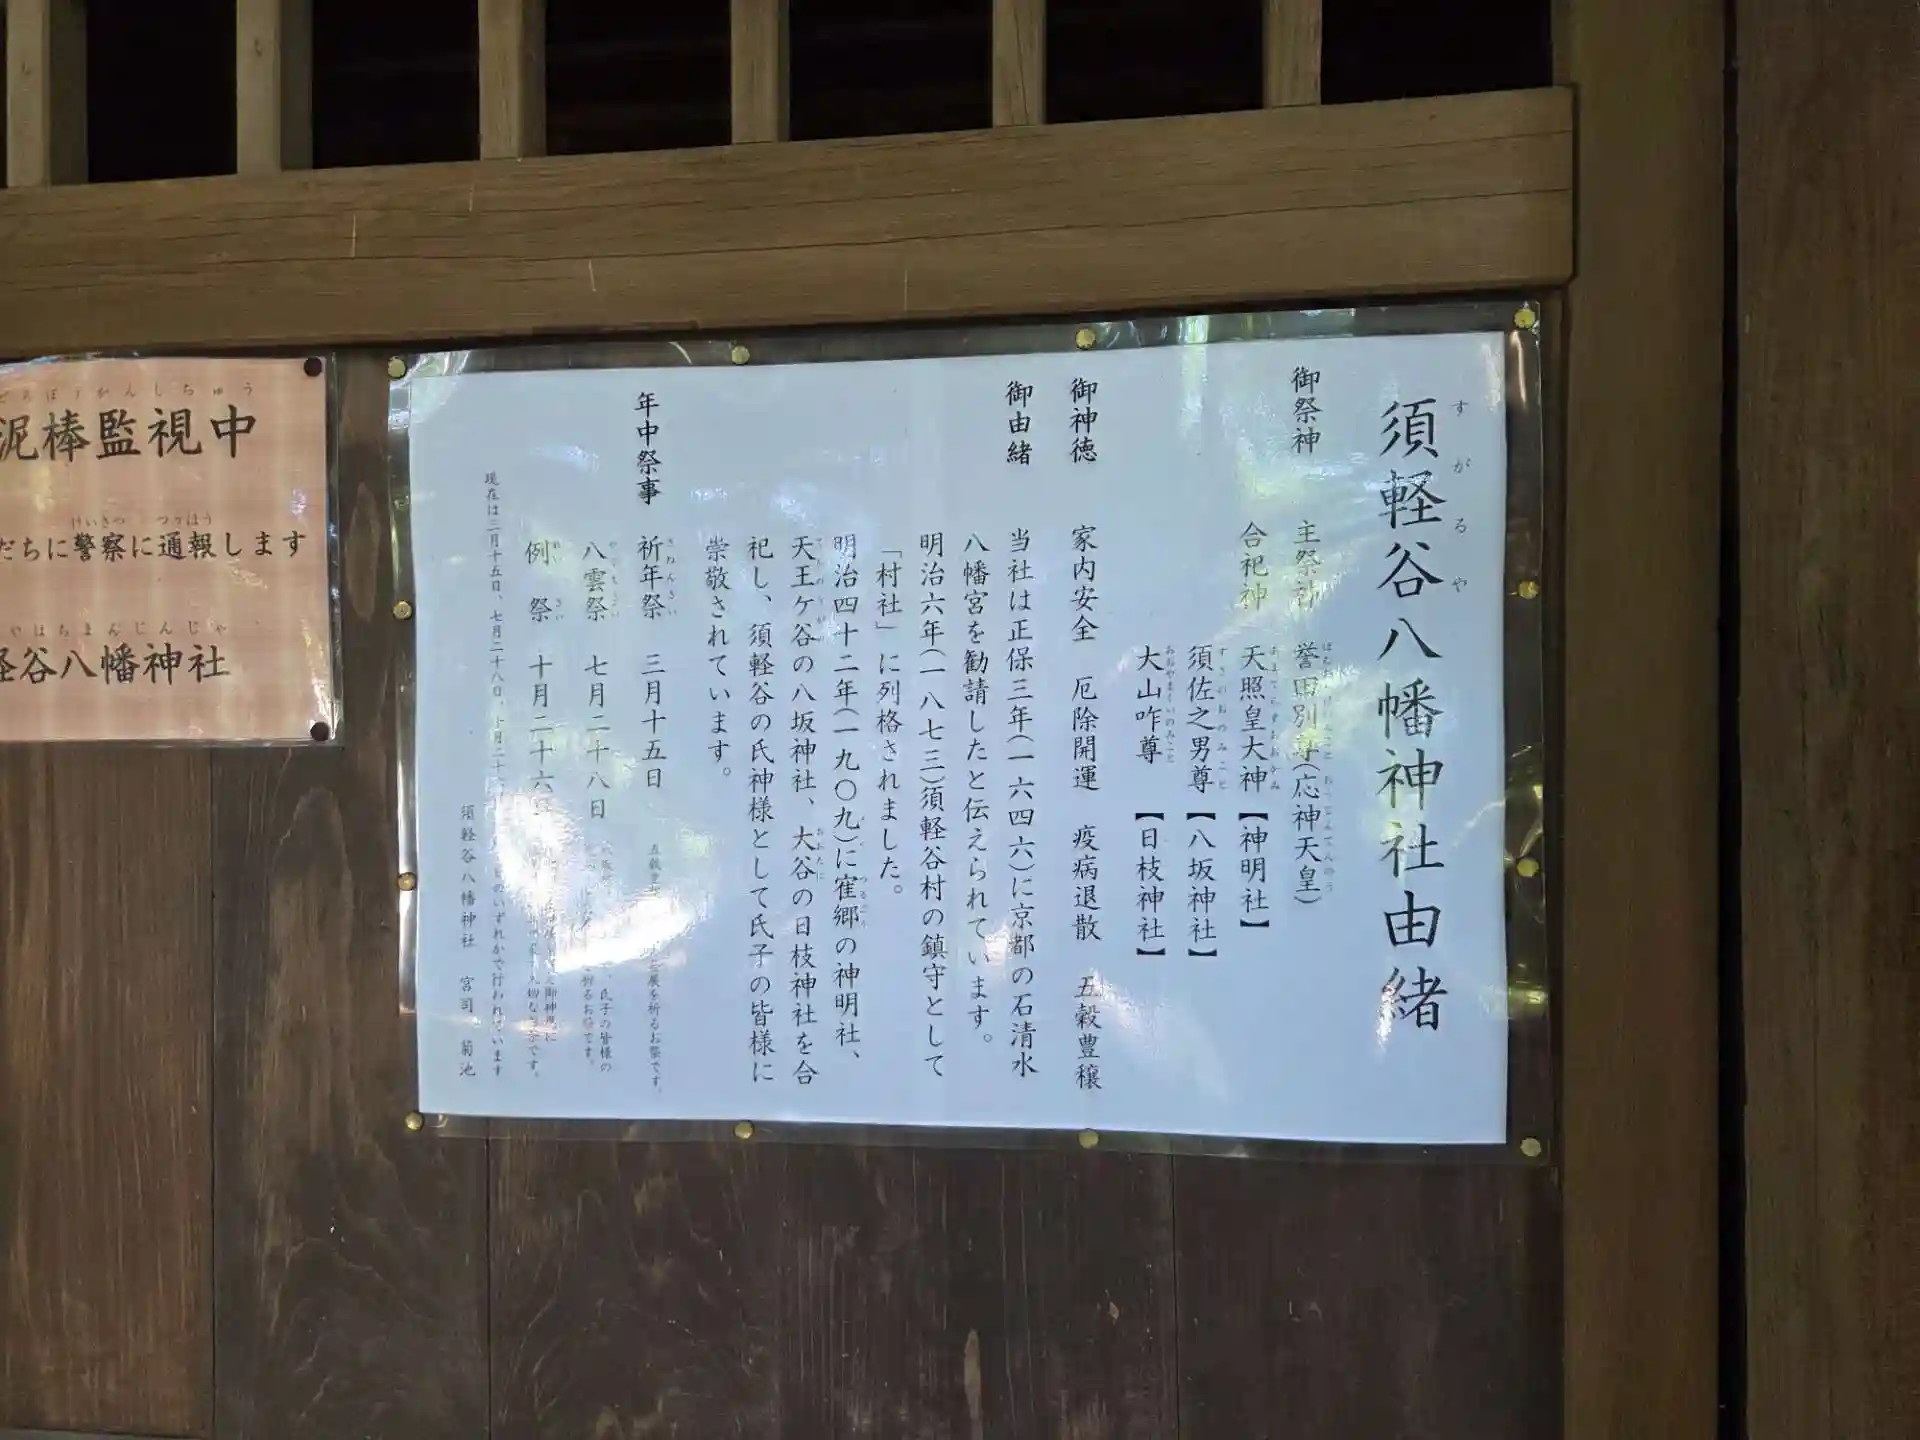 須軽谷八幡神社由緒
すがるや
御祭神 主祭神 誉田別尊(応神天皇)
合祀神 天照皇大神【神明社】
須佐之男尊【八坂神社】
大山咋尊【日枝神社】
御神徳 家内安全 厄除開運 疫病退散 五穀豊穣
御由緒 当社は正保三年(一六四六)に京都の石清水
八幡宮を勧請したと伝えられています。
明治六年(一八七三)須軽谷村の鎮守として
「村社」に列格されました。
明治四十二年(一九〇九)に寉郷の神明社、
天王ケ谷の八坂神社、大谷の日枝神社を合
祀し、須軽谷の氏神様として氏子の皆様に
崇敬されています。
年中祭事 祈年祭 三月十五日 展を祈るお祭です。
八雲祭 七月二十八日 氏子の皆様の
祈るお祭です。
例祭 十月二十六日
現在は三月十五日、七月二十八日、十月二十 のいずれかで行われています
須軽谷八幡神社 宮司 菊池
どろぼうかんしちゅう
泥棒監視中
けいさつ つうほう
だちに警察に通報します
やはちまんじんじゃ
軽谷八幡神社